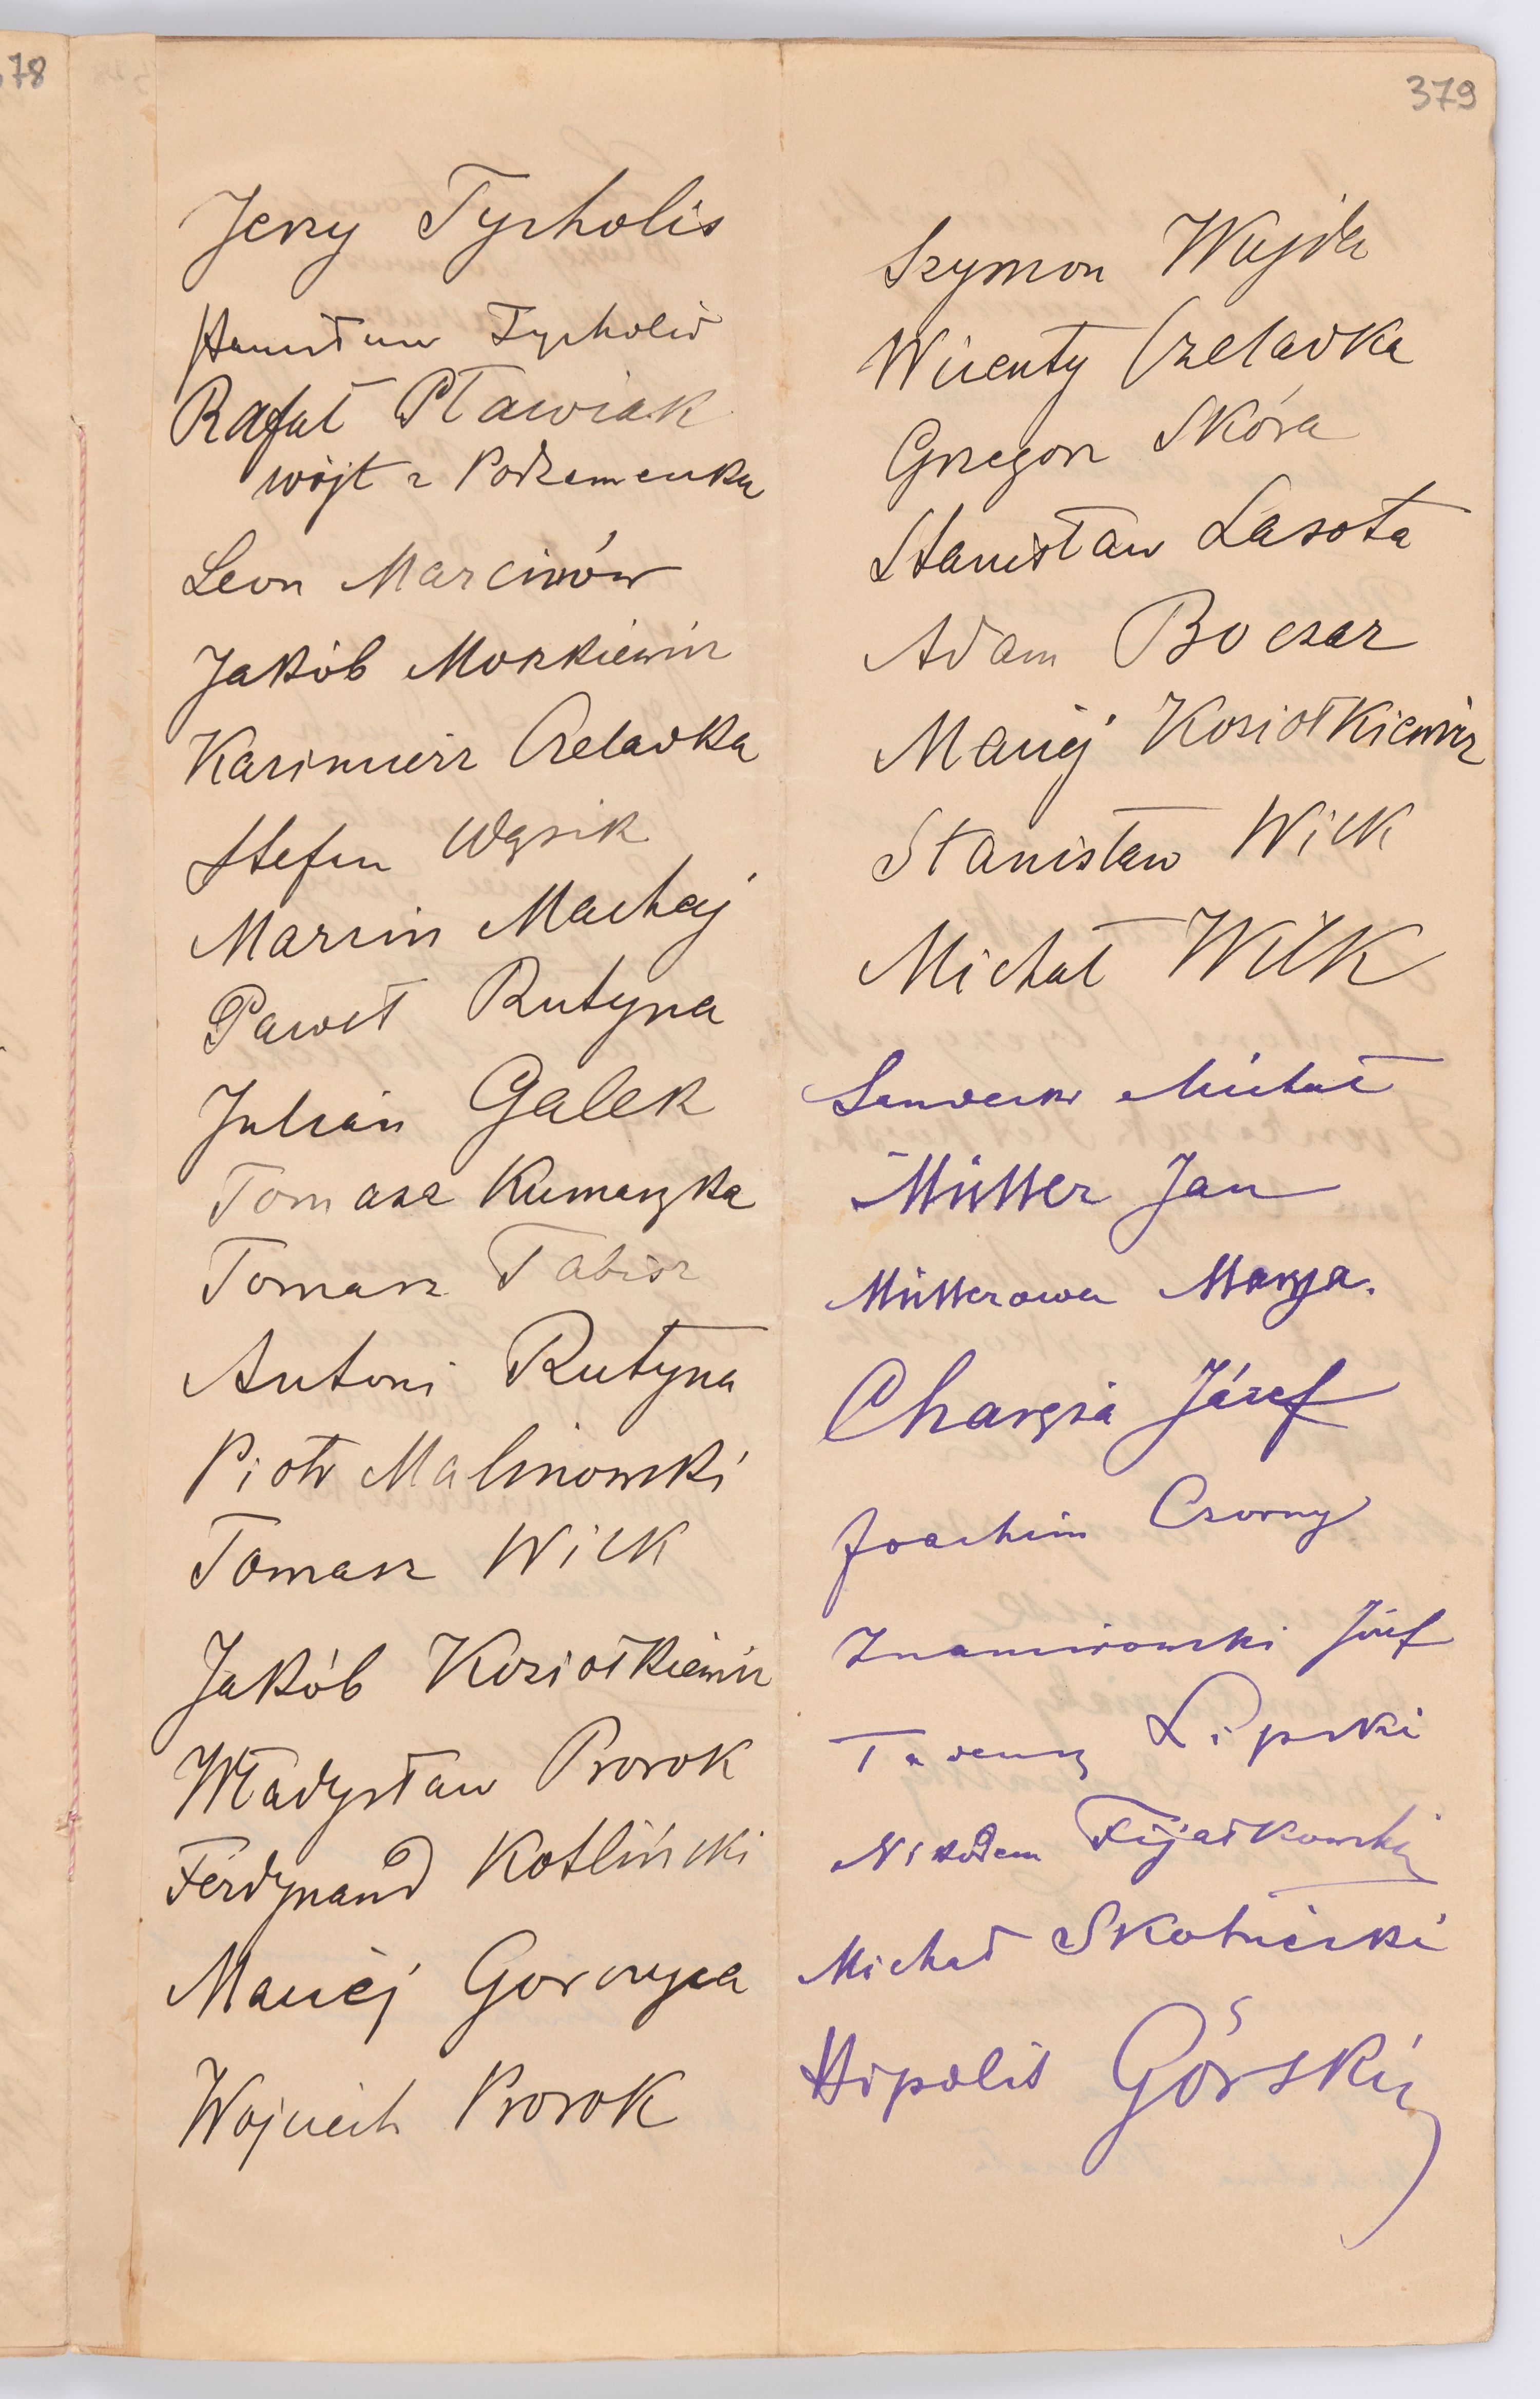 78
379
Jerzy Tycholis
Stanisław Tycholis
Rafał Pławiak
wójt z Podzameczka
Leon Marcinów
Jakób Mozkiewicz
Kazimierz Czeladka
Stefan Wąsik
Marcin Machaj
Paweł Rutyna
Julian Galek
Tomasz Kumaszka
Tomasz Tabisz
Antoni Rutyna
Piotr Malinowski
Tomasz Wilk
Jakób Koziołkiewicz
Władysław Prorok
Ferdynand Kotliński
Maciej Gorczyca
Wojciech Prorok
Szymon Wajda
Wicenty Czeladka
Grzegorz Skóra
Stanisław Lasota
Adam Boczar
Maciej Koziołkiewicz
Stanisław Wilk
Michał Wilk
Michał
Müller Jan
Müllerowa Marja.
Józef
Joachim Czorny
Znamirowski Józef
Tadeusz Lipski
Nikodem Fijałkowski
Michał Skotnicki
Hipolit Górski